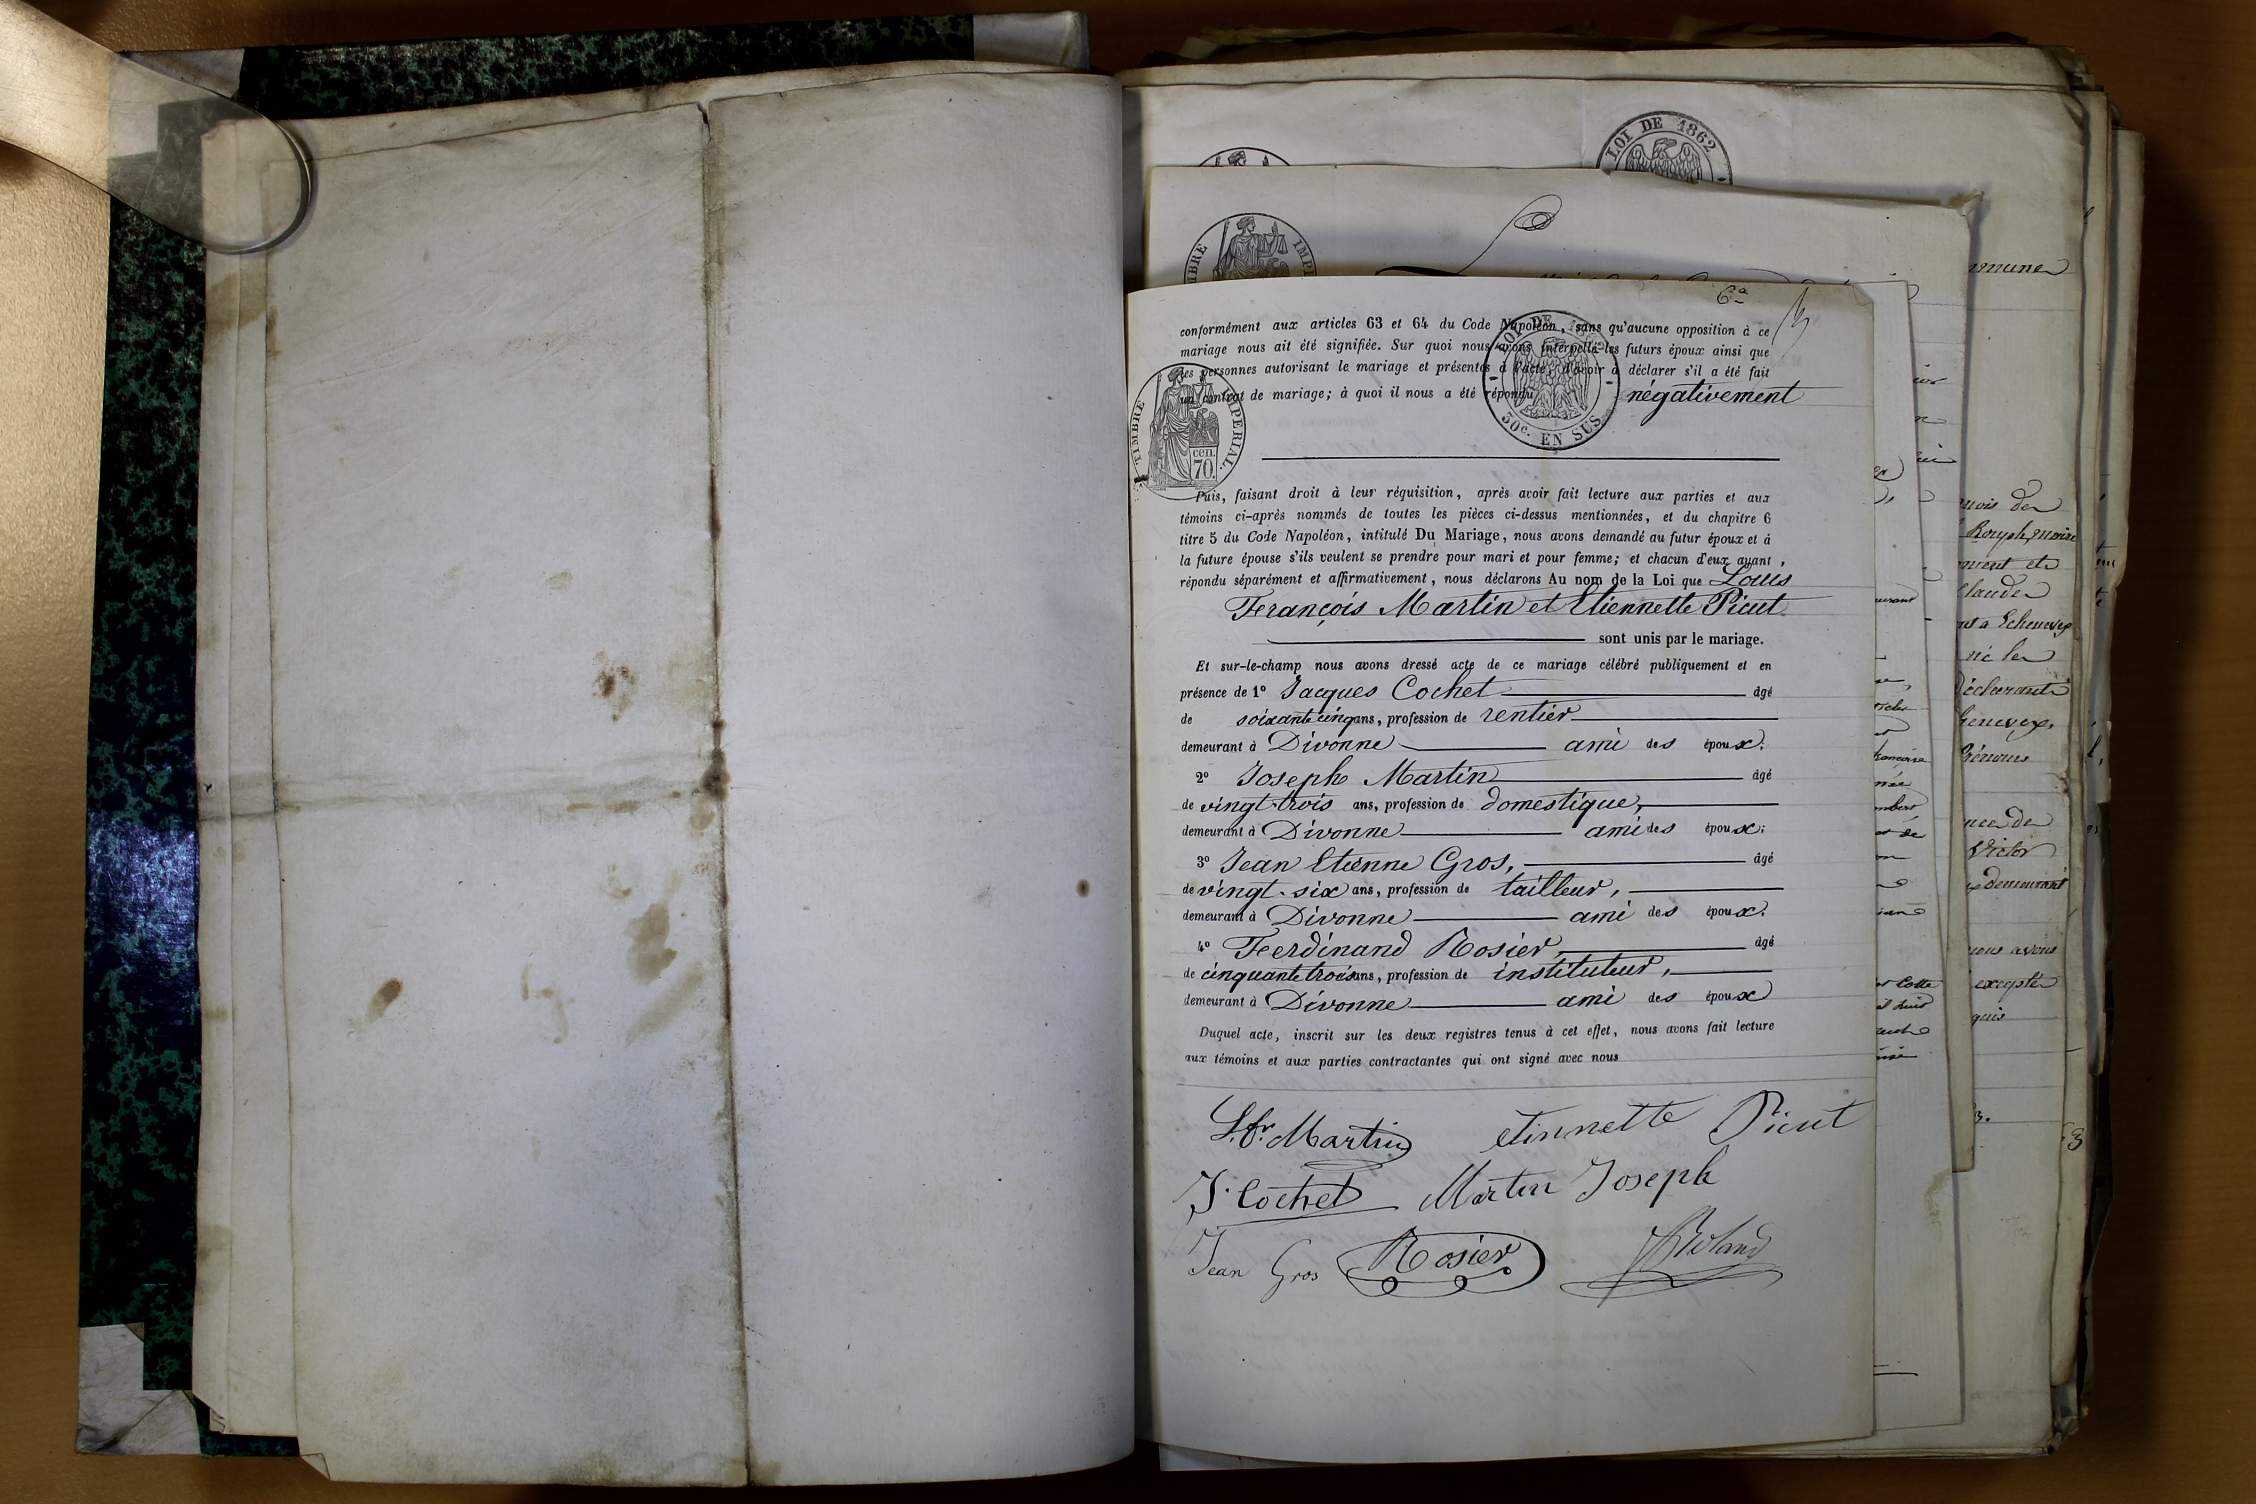 LOI DE 1862
TIMBRE IMPERIAL
6a
conformément aux articles 63 et 64 du Code Napoléon, sans qu'aucune opposition à ce
mariage nous ait été signifiée. Sur quoi nous avons interpellé les futurs époux ainsi que
les personnes autorisant le mariage et présentes à l'acte, d'avoir à déclarer s'il a été fait
un contrat de mariage; à quoi il nous a été répondu négativement
LOI DE 1862
30c. EN SUS
TIMBRE IMPERIAL.
cen.
70.
Puis, faisant droit à leur réquisition, après avoir fait lecture aux parties et aux
témoins ci-après nommés de toutes les pièces ci-dessus mentionnées, et du chapitre 6
titre 5 du Code Napoléon, intitulé Du Mariage, nous avons demandé au futur époux et à
la future épouse s'ils veulent se prendre pour mari et pour femme; et chacun d'eux ayant,
répondu séparément et affirmativement, nous déclarons Au nom de la Loi que Louis
François Martin et Etiennette Picut
sont unis par le mariage.
Et sur-le-champ nous avons dressé acte de ce mariage célébré publiquement et en
présence de 1º Jacques Cochet âgé
de soixante cinq ans, profession de rentier
demeurant à Divonne ami des époux;
2º Joseph Martin âgé
de vingt-trois ans, profession de domestique,
demeurant à Divonne ami des époux;
3º Jean Etienne Gros, âgé
de vingt-six ans, profession de tailleur,
demeurant à Divonne ami des époux.
4º Ferdinand Rosier, âgé
de cinquante trois ans, profession de instituteur,
demeurant à Divonne ami des époux
Duquel acte, inscrit sur les deux registres tenus à cet effet, nous avons fait lecture
aux témoins et aux parties contractantes qui ont signé avec nous
L. fr. Martin etinnette Picut
J. Cochet Martin Joseph
Jean Gros Rosier Roland
mmune
mois de
Claude
né le
Victor
demeurant
nous avons
excepté